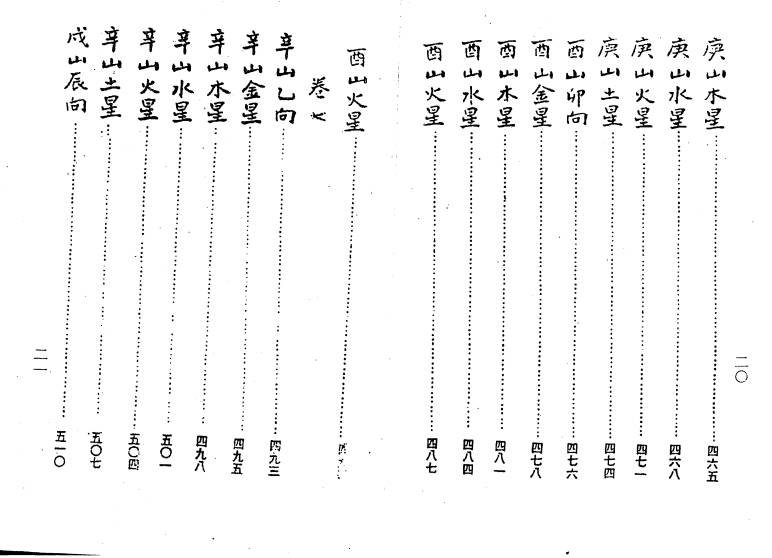 庚山木星 四六五
庚山水星 四六八
庚山火星 四七一
庚山土星 四七四
酉山卯向 四七六
酉山金星 四七八
酉山木星 四八一
酉山水星 四八四
酉山火星 四八七
二〇
酉山火星 四
卷七
辛山乙向 四九三
辛山金星 四九五
辛山木星 四九八
辛山水星 五〇一
辛山火星 五〇四
辛山土星 五〇七
戍山辰向 五一〇
二一